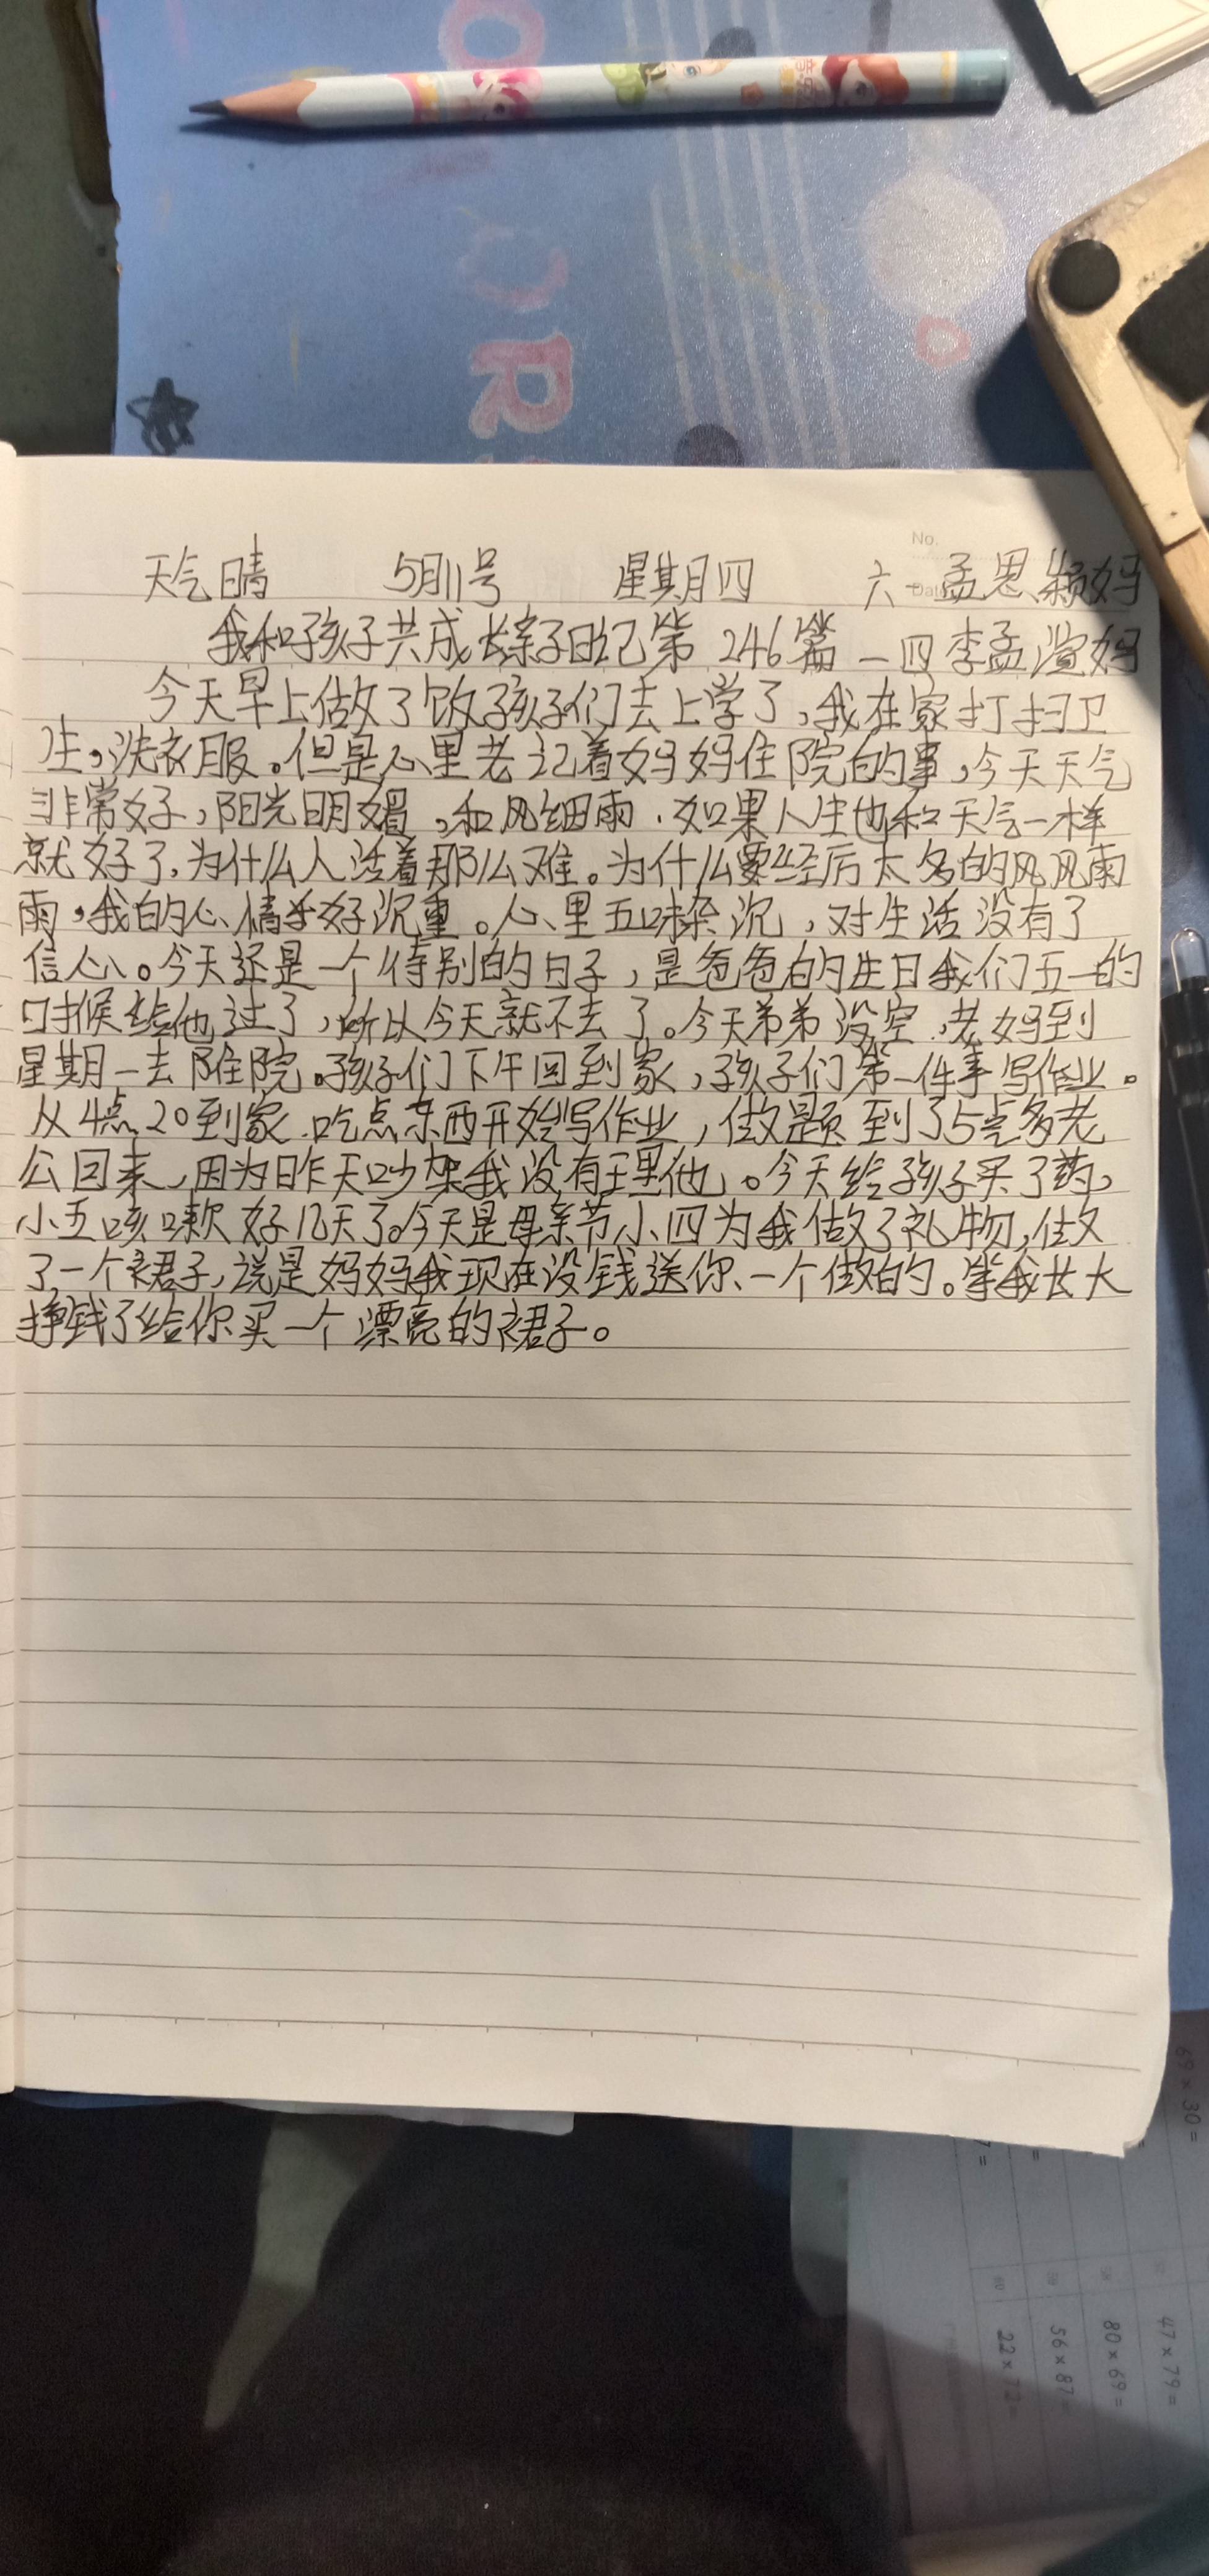 OR
No.
Dat
天气晴 5月11号 星期四 六一孟思颖妈
我和孩子共成长亲子日记第246篇 一四李孟渲妈
今天早上做了饭孩子们去上学了,我在家打扫卫
生,洗衣服。但是心里老记着妈妈住院的事,今天天气
非常好,阳光明媚,和风细雨.如果人生也和天气一样
就好了,为什么人活着那么难。为什么要经历太多的风风雨
雨,我的心情好沉重。心里五味杂沉,对生活没有了
信心。今天还是一个特别的日子,是爸爸的生日我们五一的
时候给他过了,所以今天就不去了。今天弟弟没空,老妈到
星期一去住院。孩子们下午回到家,孩子们第一件事写作业。
从4点20到家.吃点东西开始写作业,做题到了5点多老
公回来,因为昨天吵架我没有理他。今天给孩子买了药,
小五咳嗽好几天了。今天是母亲节小四为我做了礼物,做
了一个裙子,说是妈妈我现在没钱送你、一个做的。等我长大
挣钱了给你买一个漂亮的裙子。
69×30=
7=
47×79=
80×69=
56×87=
22×72=